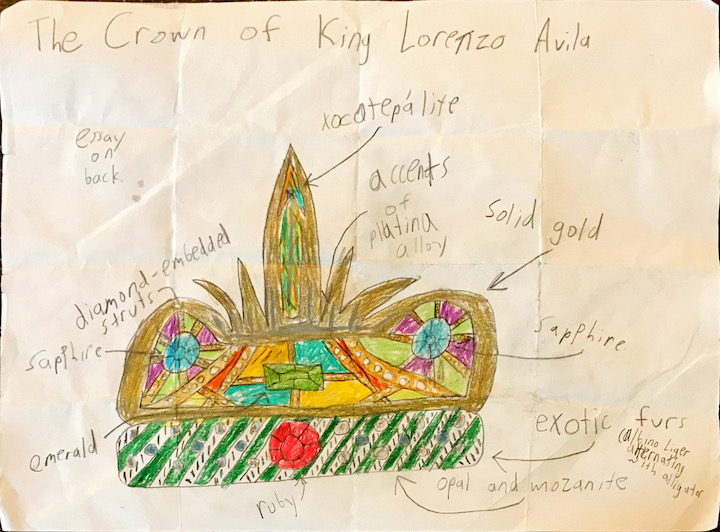 The Crown of King Lorenzo Avila
xocatepálite
essay
on
back.
accents
of
platina
alloy
solid gold
diamond-embedded
struts
sapphire
sapphire
emerald
exotic furs
(albino liger
alternating
with alligator
opal and mozanite
ruby